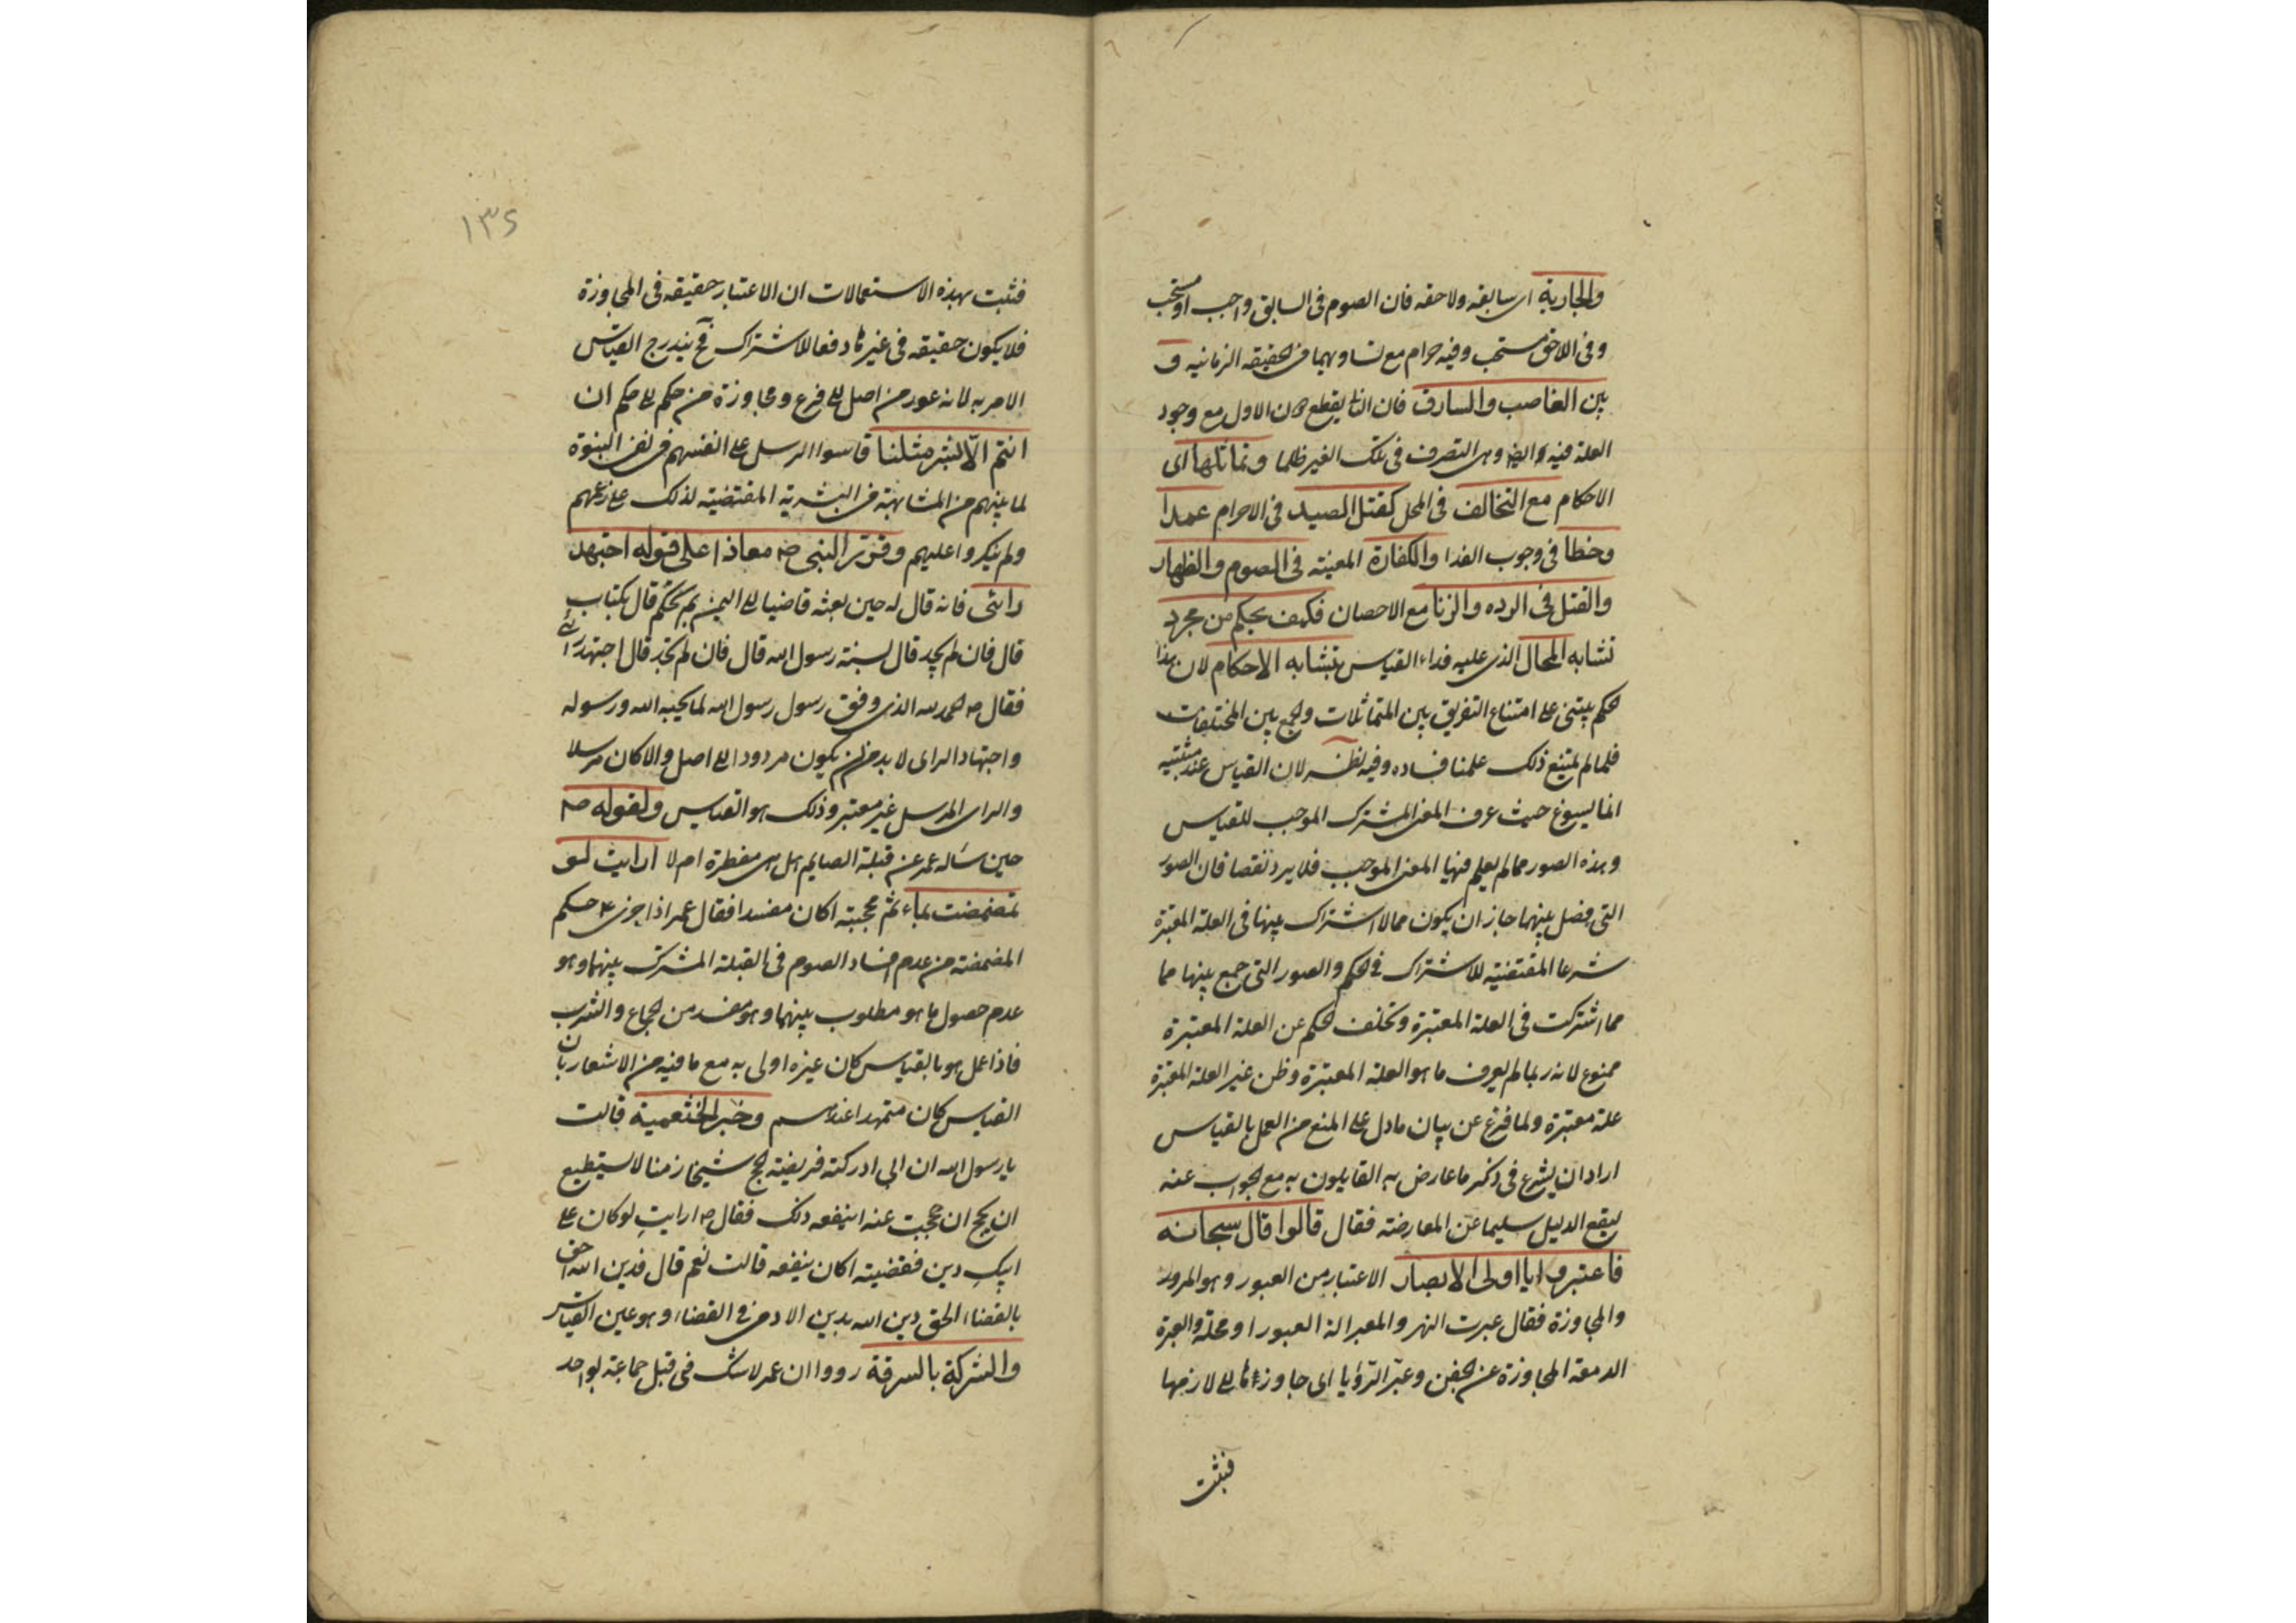 والجارية اى سابقه ولاحقه فان الصوم فى السابق واجب او مستحب
وفى اللاحق مستحب وفيه حرام مع تساويهما فى الحقيقه الزمانيه و
بين الغاصب والسارق فان الثانى يقطع دون الاول مع وجود
العلة فيه وهى التصرف فى ملك الغير ظلما وتماثلها اى
الاحكام مع التخالف فى المحل كقتل الصيد فى الاحرام عمدا
وخطا فى وجوب الفدا والكفارة المعينه فى الصوم والظهار
والقتل فى الرده والزنا مع الاحصان فكيف يحكم من مجرد
تشابه المحال الذى عليه مدار القياس بتشابه الاحكام لان هذا
الحكم يبتنى على امتناع التفريق بين المتماثلات والجمع بين المختلفات
فلما لم يمتنع ذلك علمنا فساده وفيه نظر لان القياس عند مثبتيه
انما يسوغ حيث عرف المعنى المشترك الموجب للقياس
وهذه الصور مما لم يعلم فيها المعنى الموجب فلا يرد نقضا فان الصور
التى فصل بينهما جاز ان يكون مما لا اشتراك بينها فى العلة المعتبرة
شرعا المقتضية للاشتراك فى الحكم والصور التى جمع بينها مما
مما اشتركت فى العلة المعتبرة وتخلف الحكم عن العلة المعتبرة
ممنوع لانه ربما لم يعرف ما هو العلة المعتبرة وظن غير العلة المعتبرة
علة معتبرة ولما فرغ عن بيان مادل على المنع من العمل بالقياس
اراد ان يشرع فى ذكر ما عارض به القايلون به مع الجواب عنه
ليقع الدليل سليما عن المعارضه فقال قالوا قال سبحانه
فاعتبروا يا اولى الابصار الاعتبار من العبور وهو المرور
والمجاوزة فقال عبرت النهر والمعبر الة العبور او محله والعبرة
الدمعة المجاوزة عن الجفن وعبّر الرّؤيا اى جاوزها الى لازمها
فثبت
١٣٥
فثبت بهذه الاستعمالات ان الاعتبار حقيقه فى المجاوزة
فلا يكون حقيقه فى غيرها دفعا للاشتراك فح يندرج القياس
الامر به لانه عبور من اصل الى فرع ومجاوزة من حكم الى حكم ان
انتم الّا بشر مثلنا قاسوا الرسل على انفسهم فى نفى النبوة
لما بينهم من المشابهة فى البشرية المقتضيه لذلك على زعمهم
ولم ينكروا عليهم وقرّر النبى ص معاذا على قوله اجتهد
رائى فانه قال له حين بعثه قاضيا الى اليمن بم تحكم قال بكتاب الله
قال فان لم تجد قال بسنة رسول الله قال فان لم تجد قال اجتهد رائى
فقال ص الحمد لله الذى وفق رسول رسول الله لما يحبه الله ورسوله
واجتهاد الراى لا بد من ان يكون مردودا الى اصل والا كان مرسلا
والراى المرسل غير معتبر وذلك هو القياس ولقوله ص
حين سَاله عمر عن قبلة الصايم هل هى مفطرة ام لا ارايت لو
تمضمضت بماء ثم مججته اكان مفسدا فقال عمر اذا اجرى ع حكم
المضمضة من عدم افساد الصوم فى القبلة المشترك بينهما وهو
عدم حصول ما هو مطلوب بينهما وهو مفسد من الجماع والشرب
فاذا عمل هو بالقياس كان غيره اولى به مع ما فيه من الاشعار بان
القياس كان متمهدا عندهم وخبر الخثعمية قالت
يا رسول الله ان ابى ادركته فريضة الحج شيخا زمنا لا يستطيع
ان يحج ان حججت عنه اينفعه ذلك فقال ص ارايتِ لو كان على
ابيكِ دين فقضيته اكان ينفعه قالت نعم قال فدين الله احق
بالقضاء الحق دين الله بدين الادمى فى القضاء وهو عين القياس
والشركة بالسرقة رووا ان عمر لا شك فى قتل جماعة بواحد